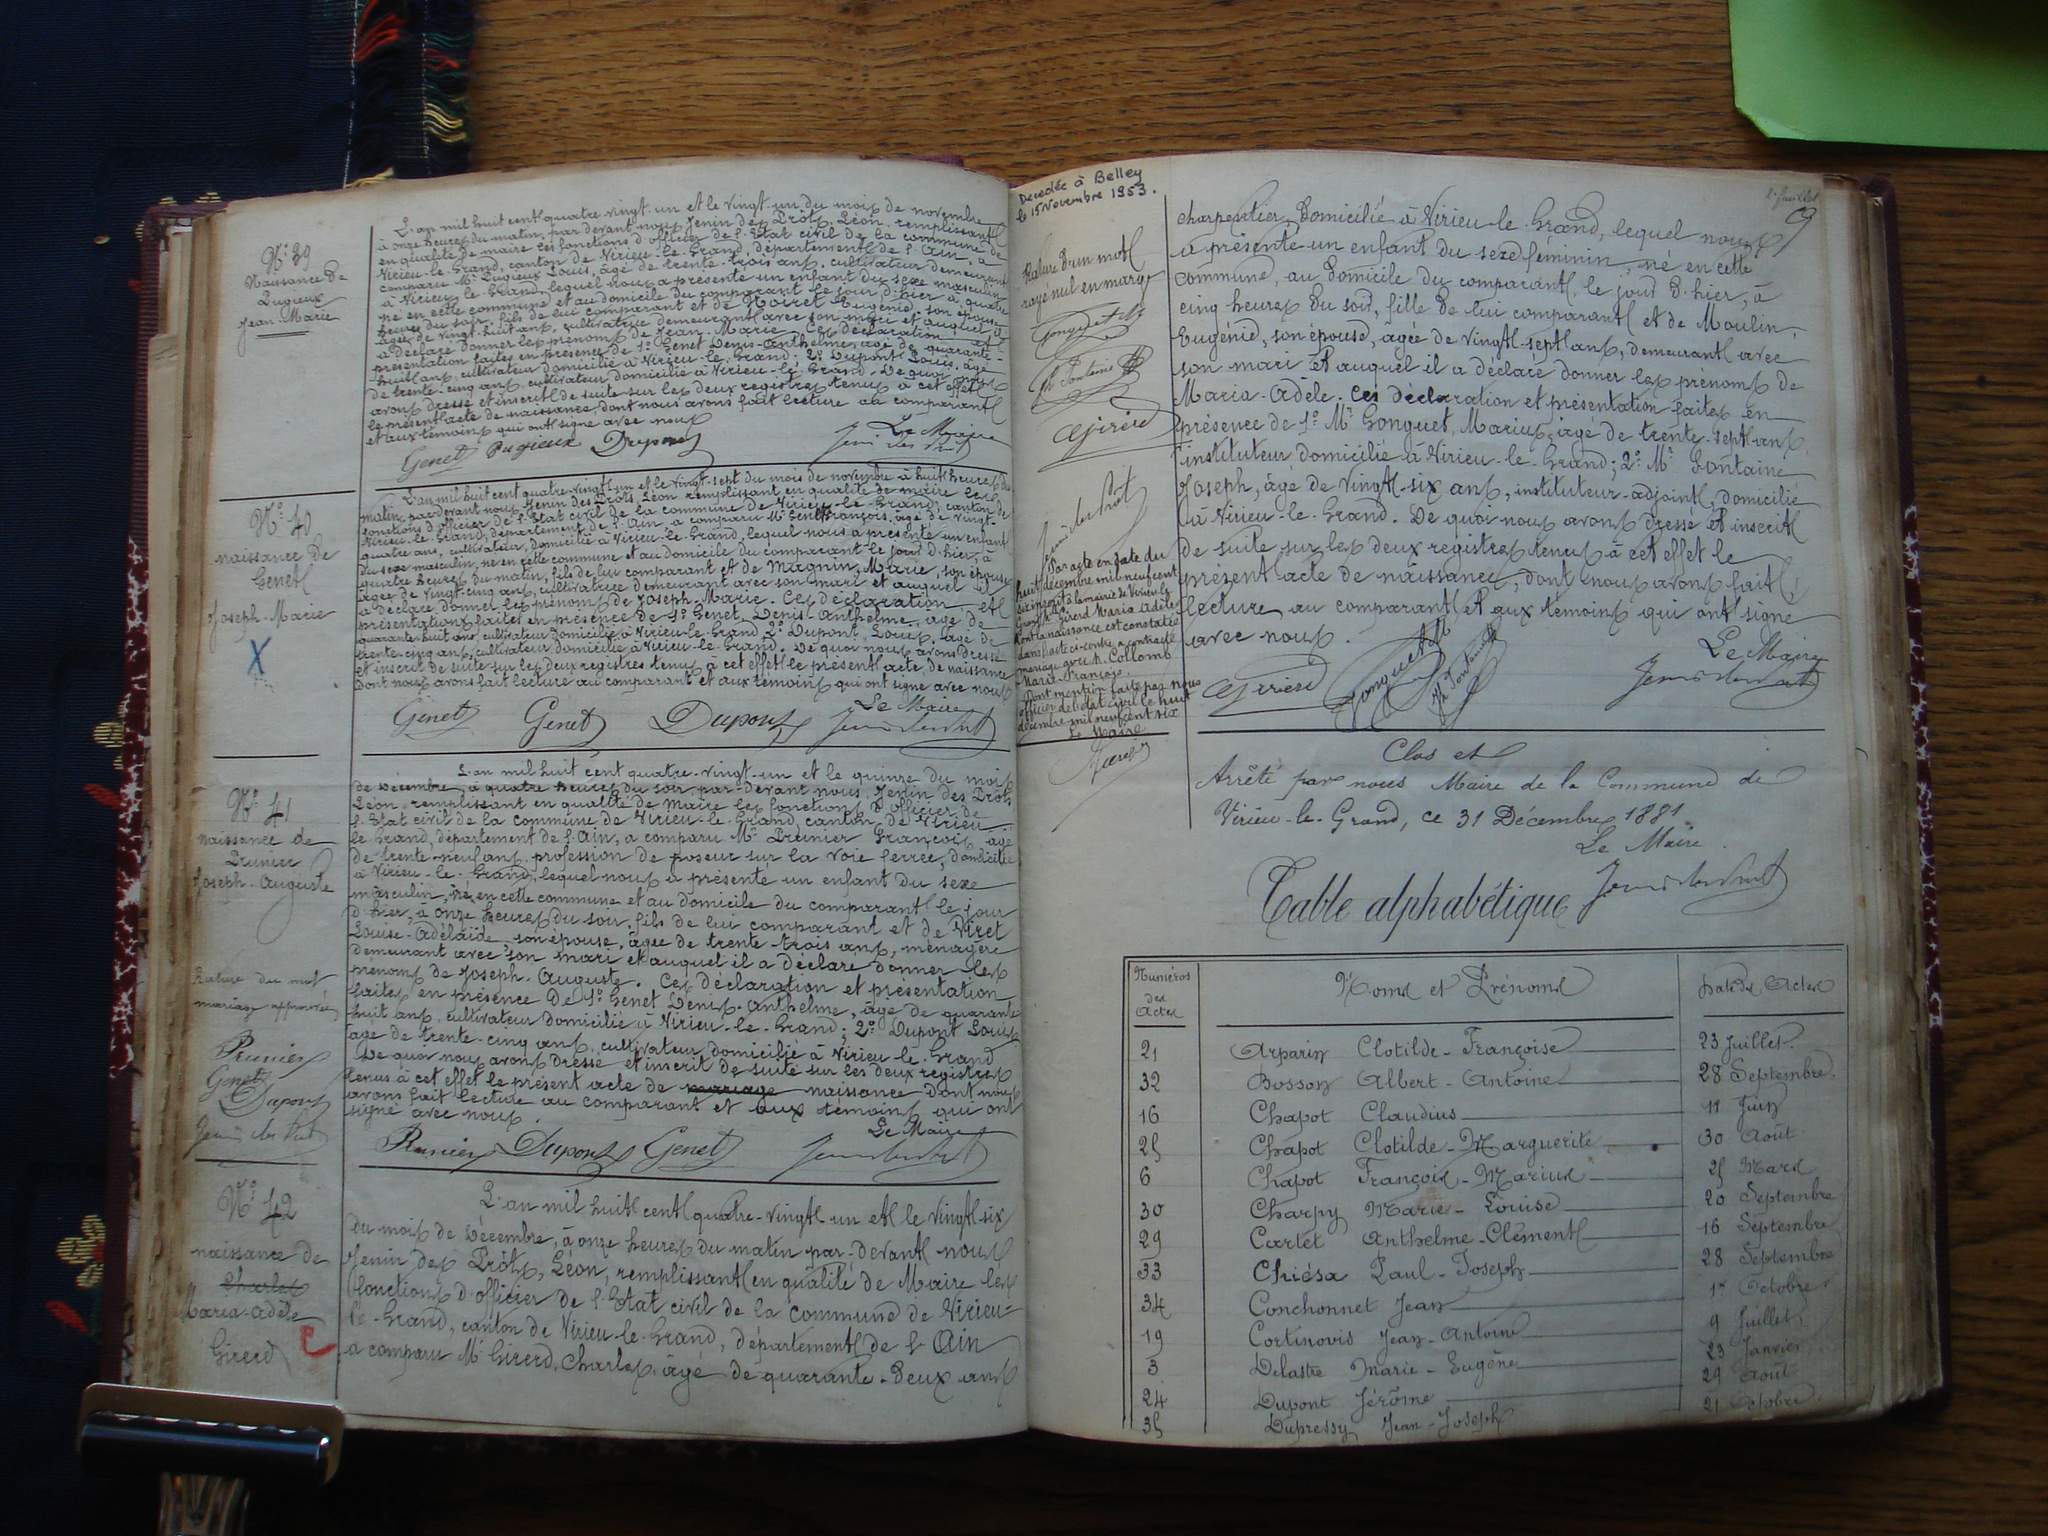 N° 39
Naissance de
Pugieux
Jean-Marie
L'an mil huit cent quatre-vingt-un et le vingt-un du mois de novembre
à onze heures du matin, par devant nous Jenin des Prôts, Léon, remplissant
en qualité de maire les fonctions d'officier de l'Etat civil de la commune de
Virieu-le-Grand, canton de Virieu-le-Grand, département de l'Ain, a
comparu Mr Pugieux Louis, âgé de trente-trois ans, cultivateur demeurant
à Virieu-le-Grand, lequel nous a présenté un enfant du sexe masculin
né en cette commune et au domicile du comparant le jour d'hier à quatre
heures du soir, fils de lui comparant et de Noiret Eugénie, son épouse
âgée de vingt-huit ans, cultivatrice demeurant avec son mari et auquel il
a déclaré donner les prénoms de Jean-Marie. Ces déclaration et
présentation faites en présence de 1° Genet Denis-Anthelme, âgé de quarante-
huit ans, cultivateur domicilié à Virieu-le-Grand. 2° Dupont Louis, âgé
de trente-cinq ans, cultivateur domicilié à Virieu-le-Grand. De quoi nous
avons dressé et inscrit de suite sur les deux registres tenus à cet effet
le présent acte de naissance, dont nous avons fait lecture au comparant
et aux témoins qui ont signé avec nous
Le Maire
Genet Pugieux Dupont Jenin des Prôts
N° 40
naissance de
Genet
Joseph-Marie
X
L'an mil huit cent quatre-vingt-un et le vingt-sept du mois de novembre à huit heures du
matin, par devant nous, Jenin des Prôts, Léon remplissant en qualité de maire les
fonctions d'officier de l'Etat civil de la commune de Virieu-le-Grand, canton de
Virieu-le-Grand, département de l'Ain, a comparu Mr Genet François, âgé de vingt-
quatre ans, cultivateur, domicilié à Virieu-le-Grand, lequel nous a présenté un enfant
du sexe masculin, né en cette commune et au domicile du comparant le jour d'hier, à
quatre heures du matin, fils de lui comparant et de Magnin, Marie, son épouse
âgée de vingt-cinq ans, cultivatrice demeurant avec son mari et auquel il
a déclaré donner les prénoms de Joseph-Marie. Ces déclaration et
présentation faites en présence de 1° Genet, Denis-Anthelme, âgé de
quarante-huit ans, cultivateur domicilié à Virieu-le-Grand 2° Dupont, Louis, âgé de
trente-cinq ans, cultivateur domicilié à Virieu-le-Grand. De quoi nous avons dressé
et inscrit de suite sur les deux registres tenus à cet effet le présent acte de naissance
dont nous avons fait lecture au comparant et aux témoins qui ont signé avec nous
Le Maire
Genet Genet Dupont Jenin des Prôts
N° 41
naissance de
Prunier
Joseph-Auguste
Rature du mot
mariage approuvée
Prunier
Genet
Dupont
Jenin des Prôts
L'an mil huit cent quatre-vingt-un et le quinze du mois
de décembre, à quatre heures du soir, par-devant nous, Jenin des Prôts
Léon, remplissant en qualité de maire les fonctions d'officier de
l'Etat civil de la commune de Virieu-le-Grand, canton de Virieu-
le-Grand, département de l'Ain, a comparu Mr Prunier François, âgé
de trente-neuf ans, profession de poseur sur la voie ferrée, domicilié
à Virieu-le-Grand, lequel nous a présenté un enfant du sexe
masculin, né en cette commune et au domicile du comparant le jour
d'hier, à onze heures du soir, fils de lui comparant et de Viret
Louise-Adélaïde, son épouse, âgée de trente-trois ans, ménagère
demeurant avec son mari et auquel il a déclaré donner les
prénoms de Joseph-Auguste. Ces déclaration et présentation
faites en présence de 1° Genet Denis-Anthelme, âgé de quarante
huit ans, cultivateur domicilié à Virieu-le-Grand; 2° Dupont Louis
âgé de trente-cinq ans, cultivateur domicilié à Virieu-le-Grand
De quoi nous avons dressé et inscrit de suite sur les deux registres
tenus à cet effet le présent acte de mariage naissance dont nous
avons fait lecture au comparant et aux témoins qui ont
signé avec nous.
Le Maire
Prunier Dupont Genet Jenin des Prôts
N° 42
naissance de
Charles
Maria-Adèle
Girerd
L'an mil huit cent quatre-vingt un et le vingt-six
du mois de décembre, à onze heures du matin par-devant nous
Jenin des Prôts, Léon, remplissant en qualité de Maire les
fonctions d'officier de l'Etat civil de la commune de Virieu-
le-Grand, canton de Virieu-le-Grand, département de l'Ain
a comparu Mr Girerd, Charles, âgé de quarante-deux ans
Decedée à Belley
le 15 Novembre 1953.
Rature d'un mot
rayé nul en marge
Gonguet
Jh Fontaine
Girerd
Jenin des Prôts
Par acte en date du
huit décembre mil neuf cent
six inscrit à la mairie de Virieu-le
Grand, Girerd Maria Adèle
dont la naissance est constatée
dans l'acte ci-contre a contracté
mariage avec M. Collomb
Marie-François.
Dont mention faite par nous
officier de l'état civil le huit
décembre mil neuf cent six
Le Maire
2e feuillet
charpentier, domicilié à Virieu-le-Grand, lequel nous
a présenté un enfant du sexe féminin, né en cette
commune, au domicile du comparant, le jour d'hier, à
cinq heures du soir, fille de lui comparant et de Moulin,
Eugénie, son épouse, âgée de vingt-sept ans, demeurant avec
son mari et auquel il a déclaré donner les prénoms de
Maria-Adèle. Ces déclaration et présentation faites en
présence de 1° Mr Gonguet, Marius, âgé de trente-sept ans
instituteur, domicilié à Virieu-le-Grand; 2° Mr Fontaine
Joseph, âgé de vingt-six ans, instituteur-adjoint, domicilié
à Virieu-le-Grand. De quoi nous avons dressé et inscrit
de suite sur les deux registres tenus à cet effet le
présent acte de naissance, dont nous avons fait
lecture au comparant et aux témoins qui ont signé
avec nous.
Le Maire
Girerd Gonguet Jh Fontaine Jenin des Prôts
Clos et
Arrêté par nous Maire de la Commune de
Virieu-le-Grand, ce 31 Décembre 1881.
Le Maire.
Jenin des Prôts
Table alphabétique
Numéros des Actes Noms et Prénoms Date des Actes
21 Arparin Clotilde-Françoise 23 Juillet.
32 Bosson Albert-Antoine 28 Septembre.
16 Chapot Claudius 11 Juin
25 Chapot Clotilde-Marguerite 30 Août
6 Chapot François-Marius 25 Mars
30 Charpy Marie-Louise 20 Septembre
29 Cartet Anthelme-Clément 16 Septembre
33 Chiésa Paul-Joseph 28 Septembre
34 Conchonnet Jean 1er Octobre
19 Cortinovis Jean-Antoine 9 Juillet
3 Delastre Marie-Eugène 23 Janvier
24 Dupont Jérôme 29 Août
35 Dupressy Jean-Joseph 21 Octobre